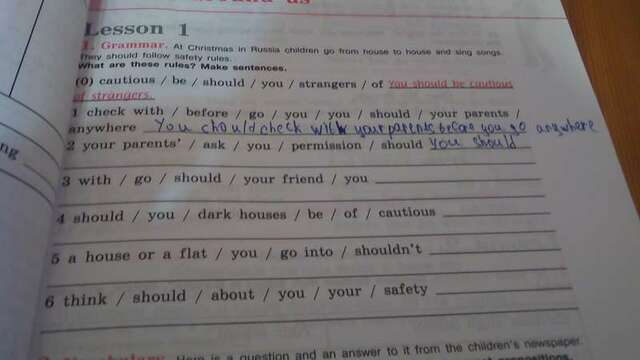 us
Lesson 1
1. Grammar. At Christmas in Russia children go from house to house and sing songs.
They should follow safety rules.
What are these rules? Make sentences.
(0) cautious / be / should / you / strangers / of You should be cautious
of strangers.
1 check with / before / go / you / you / should / your parents /
anywhere You should check with your parents before you go anywhere
2 your parents' / ask / you / permission / should you should
ng
3 with / go / should / your friend / you
4 should / you / dark houses / be / of / cautious
5 a house or a flat / you / go into / shouldn't
6 think / should / about / you / your / safety
Here is a question and an answer to it from the children's newspaper.